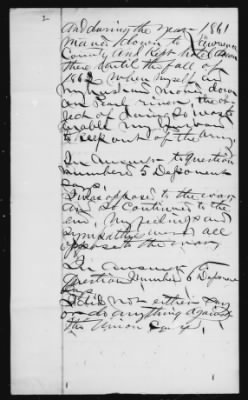 2
and during the year 1861
moved down to Lawrence
County and kept hotel
there until the fall of
1862 when myself and
my husband moved down
on Pearl river, the ob-
ject of living so was to
enable my husband
to keep out of the army.
In answer to question
number 5 Deponent
says,
I was opposed to the war
and continued to the
end, my feelings and
sympathies were all
opposed to the war
In answer to
question number 6 Deponent
I did not either say
or do anything against
the Union cause,